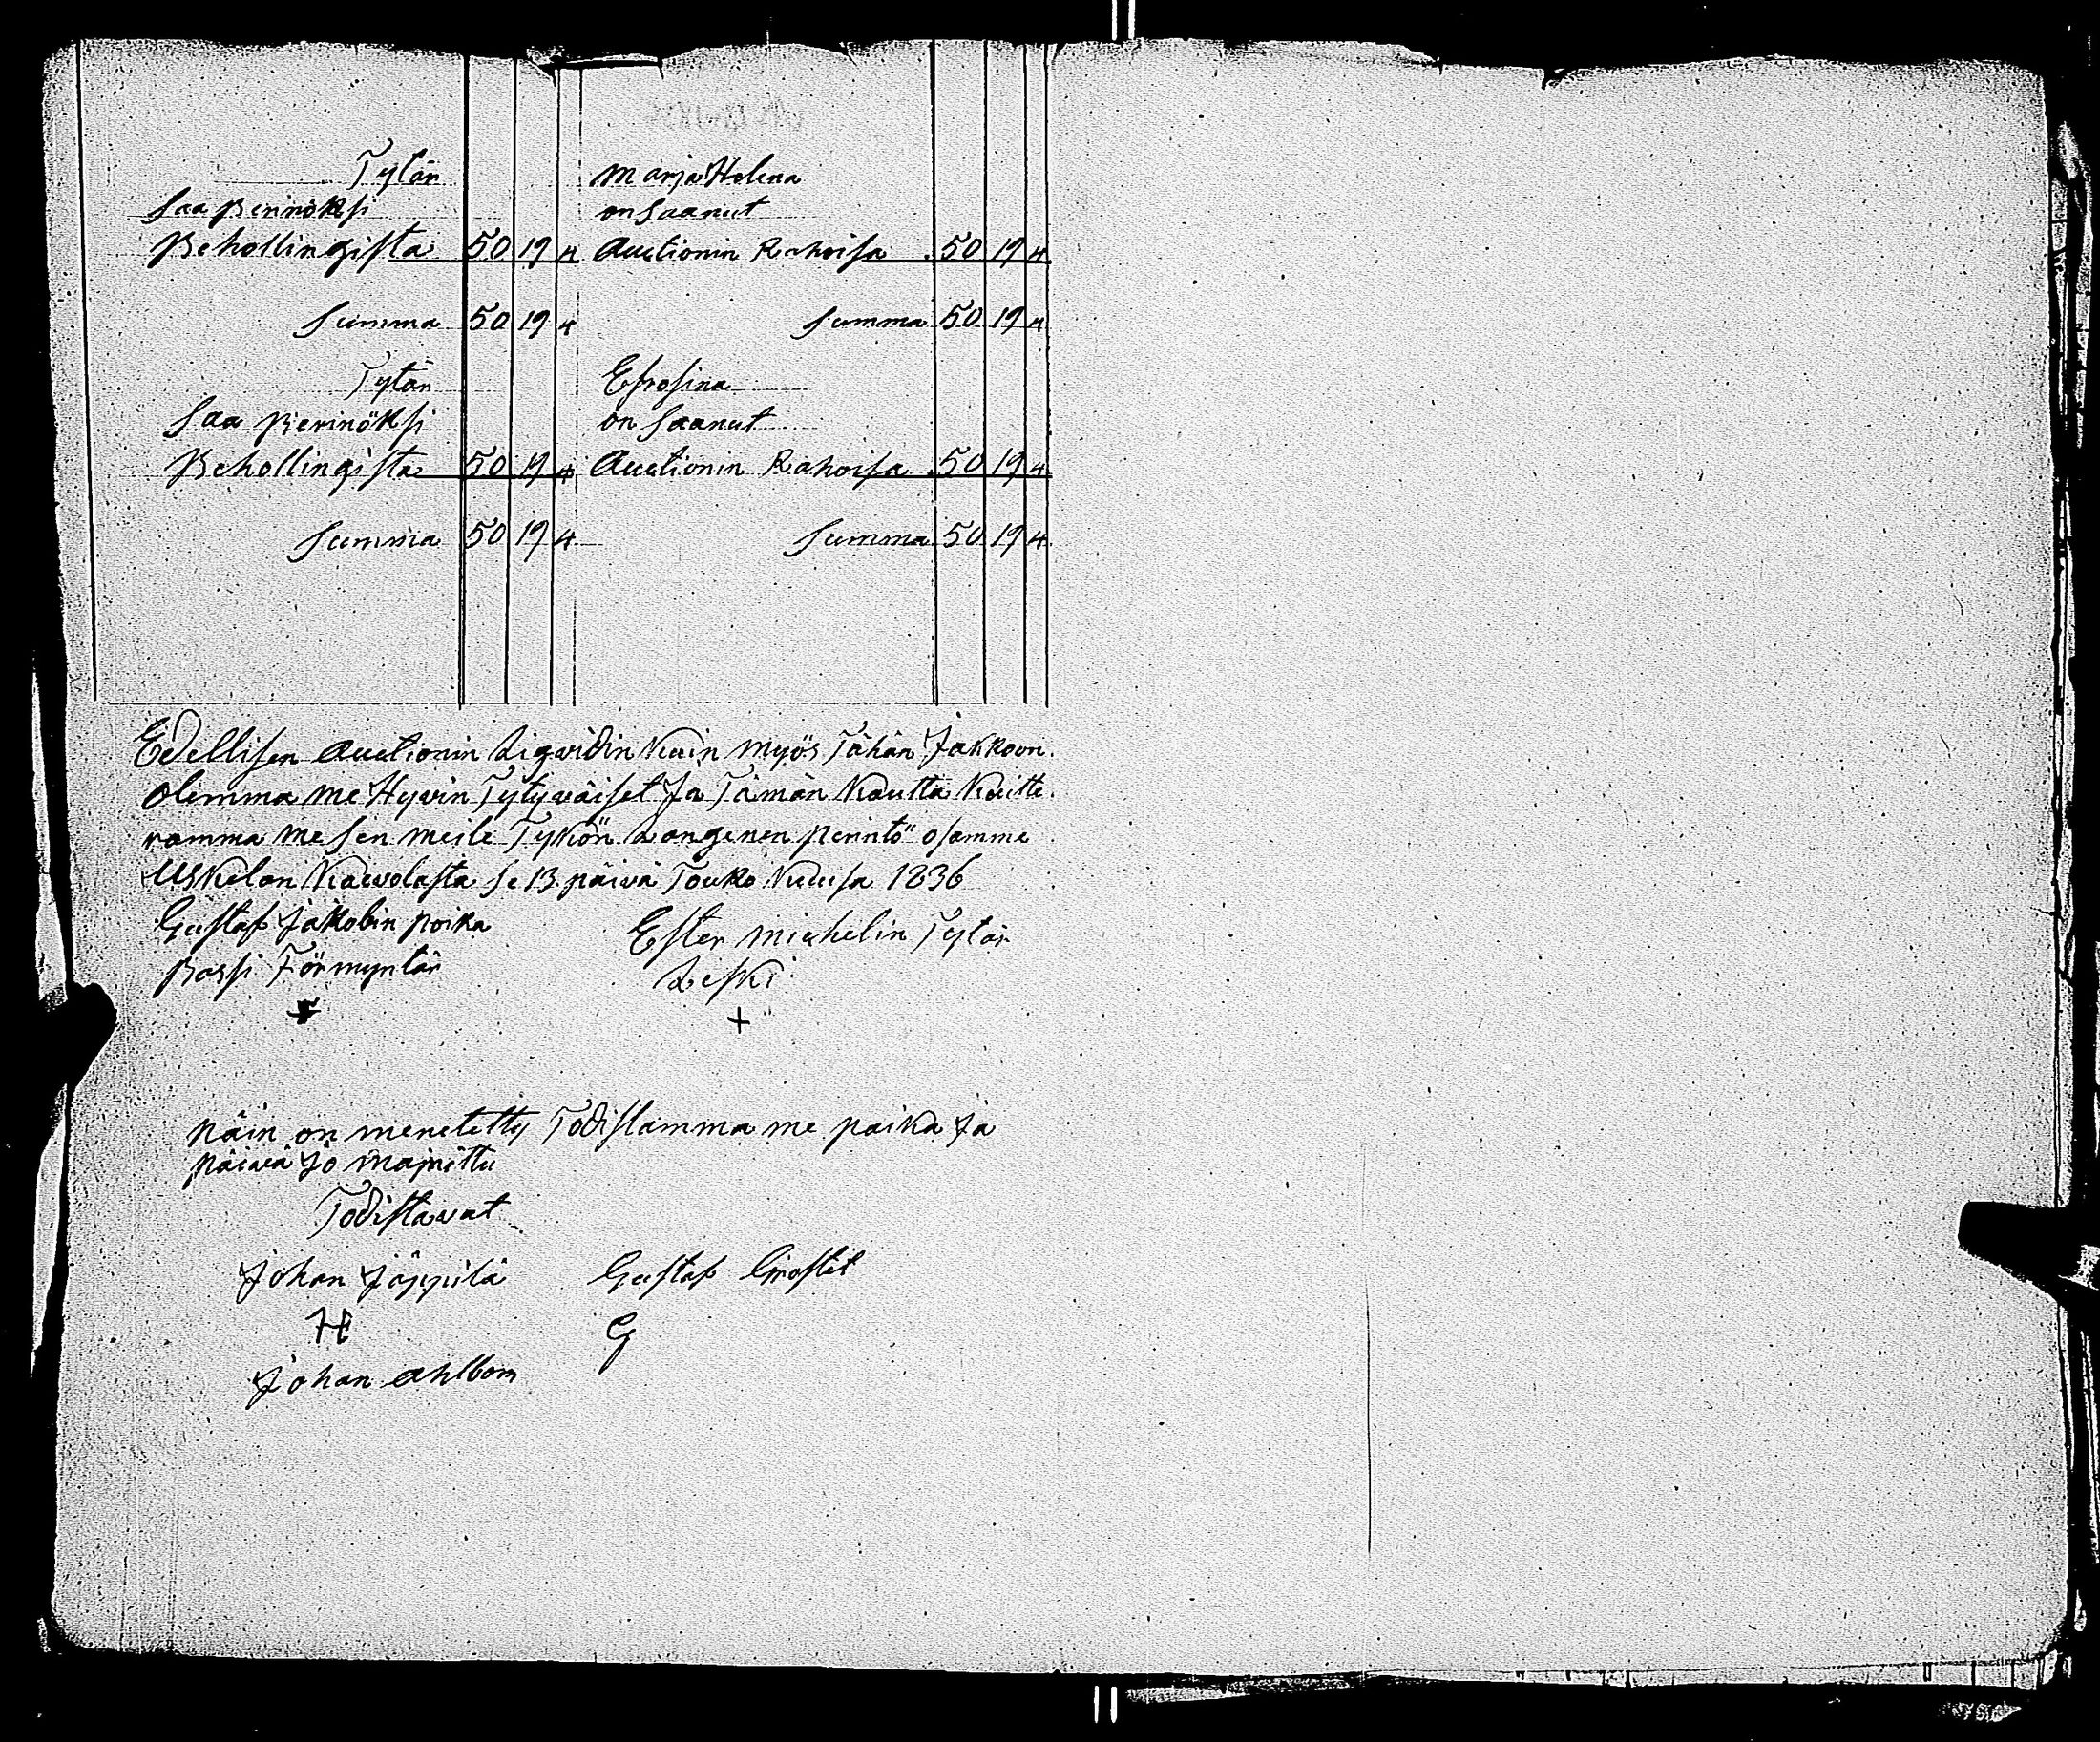 Tytär Marja Helena
saa Perinöksi on saanut
Behollingista 50 19 4 Auctionin Rahoisa 50 19 4
Summa 50 19 4 Summa 50 19 4
Tytär Efrosina
saa Perinöksi on saanut
Behollingista 50 19 4 Auctionin Rahoisa 50 19 4
Summa 50 19 4 Summa 50 19 4
Edellisen Auctionin Ligvidin Kuin Myös Tähän Jakkoon
Olemma me Hyvin Tytyväiset Ja Tämän Kautta Kuitte
ramma me sen meile Tykön Langenen perintö osamme
Uskelan Kaivolasta se 13. päivä Touko Kuusa 1836
Gustaf Jakobin poika Ester Michelin Tytär
Bassi Förmyntär Leski
+ +
Näin on menetetty Todistamma me paika Ja
päivä Jo mainittu
Todistavat
Johan Jäppilä Gustaf
H G
Johan Ahlbom